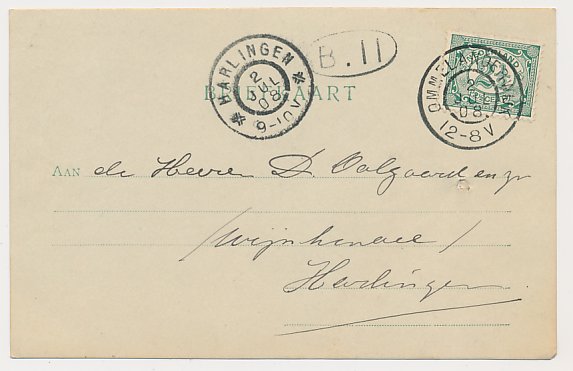 HARLINGEN
2
JUL
08
9-10V
B.11
OMMELANDERWIJK
2
JUL
08.
12-8V
BRIEFKAART
AAN de Heeren D. Oolgaard en zn
/Wijnhandel/
Harlingen